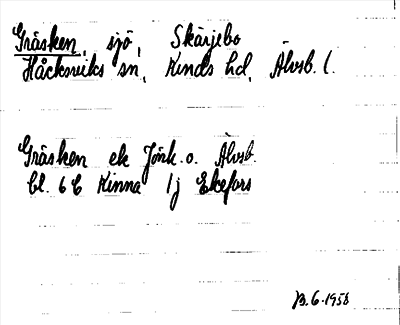 Gräsken, sjö, Skärjebo
Håcksviks sn, Kinds hd, Älvsb. l.
Gräsken ek Jönk. o. Älvsb.
bl. 6 C Kinna 1j Ekefors
13.6.1958